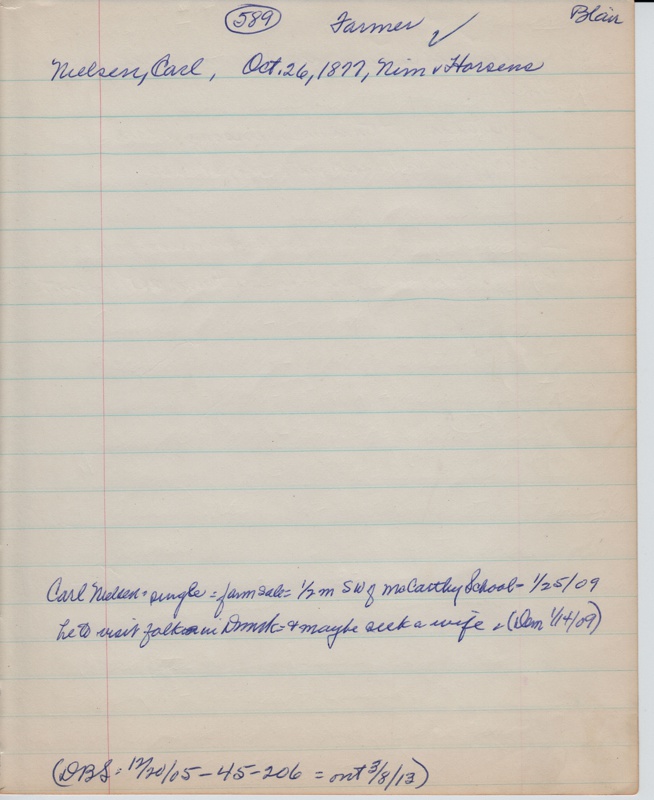 589 Farmer ✓ Blair
Nielsen, Carl, Oct. 26, 1877, Nim v Horsens
Carl Nielsen = single = farm sale = 1/2 m SW of McCarthy School - 1/25/09
he to visit folks in Dnmk = & maybe seek a wife. (Dem 1/14/09)
(DBS = 12/20/05 - 45-206 = out 3/8/13)